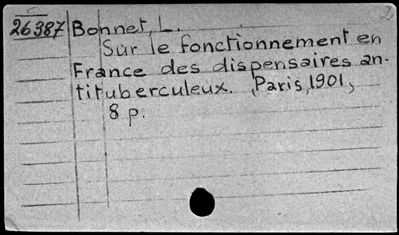 26387 Bonnet, L.
Sur le fonctionnement en
France des dispensaires an-
tituberculeux. Paris, 1901,
8 p.